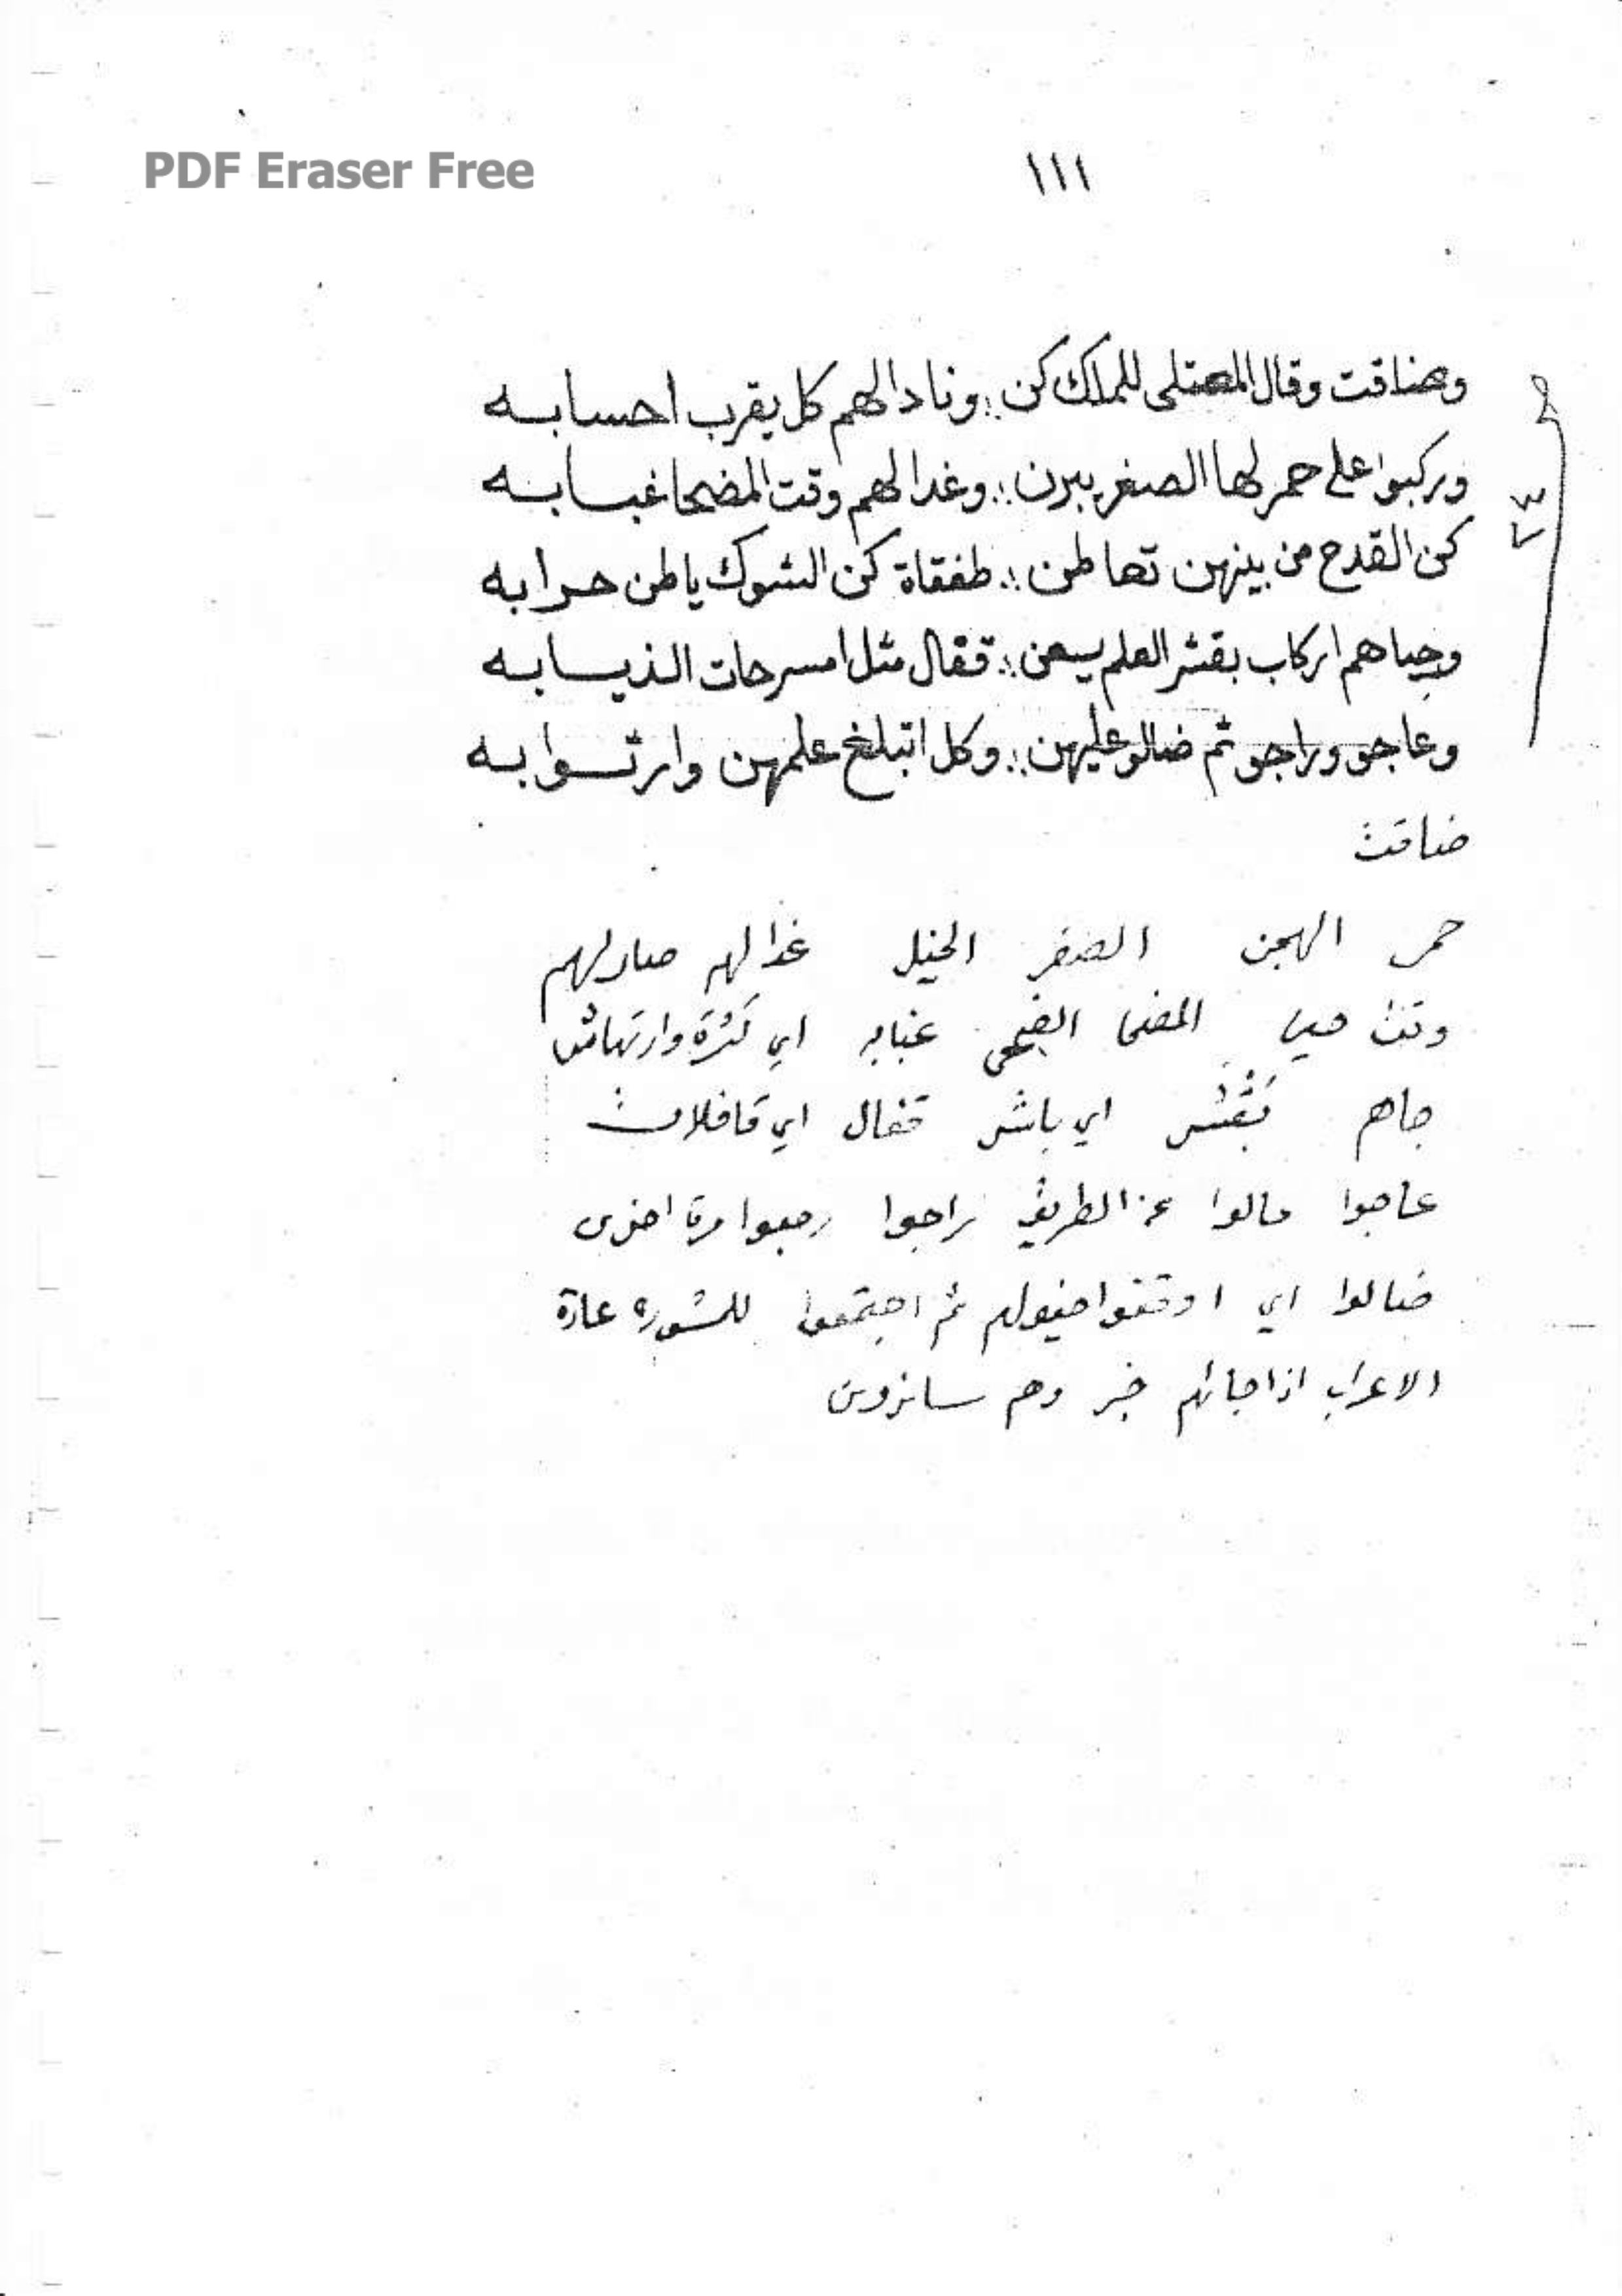 PDF Eraser Free
١١١
وضاقت وقال المعتلى للملك كن ؛ ونادا لهم كل يقرب احسابه
وركبوا على حمر لها الصفر يبرن ؛ وغدا لهم وقت المضحا غبابه
كن القدح من بينهن تعاطن ؛ طفقاة كن الشوك ياطن حرابه
وجاهم اركاب بقشر العلم يسعن ؛ قفال مثل امسرحات الذيابه
وعاجو وراجو ثم ضالو عليهن ؛ وكل اتبلغ علمهن وارتوابه
ضاقت
حمر الهجن الصفر الخيل غدا لهم صار لهم
وقت حين المضحا الضحى غبابه اي كثرة وارتهاش
جاهم بقشر اي باشر قفال اي قافلات
عاجوا مالوا عن الطريق راجوا رجعوا مرة اخرى
ضالوا اي اوقفوا خيولهم ثم اجتمعوا للشوره عادة
الاعراب اذا جائهم خبر وهم سائرون